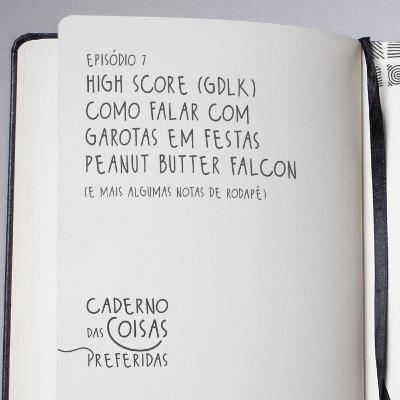 EPISÓDIO 7
HIGH SCORE (GDLK)
COMO FALAR COM
GAROTAS EM FESTAS
PEANUT BUTTER FALCON
(E MAIS ALGUMAS NOTAS DE RODAPÉ)
CADERNO
DAS COISAS
PREFERIDAS